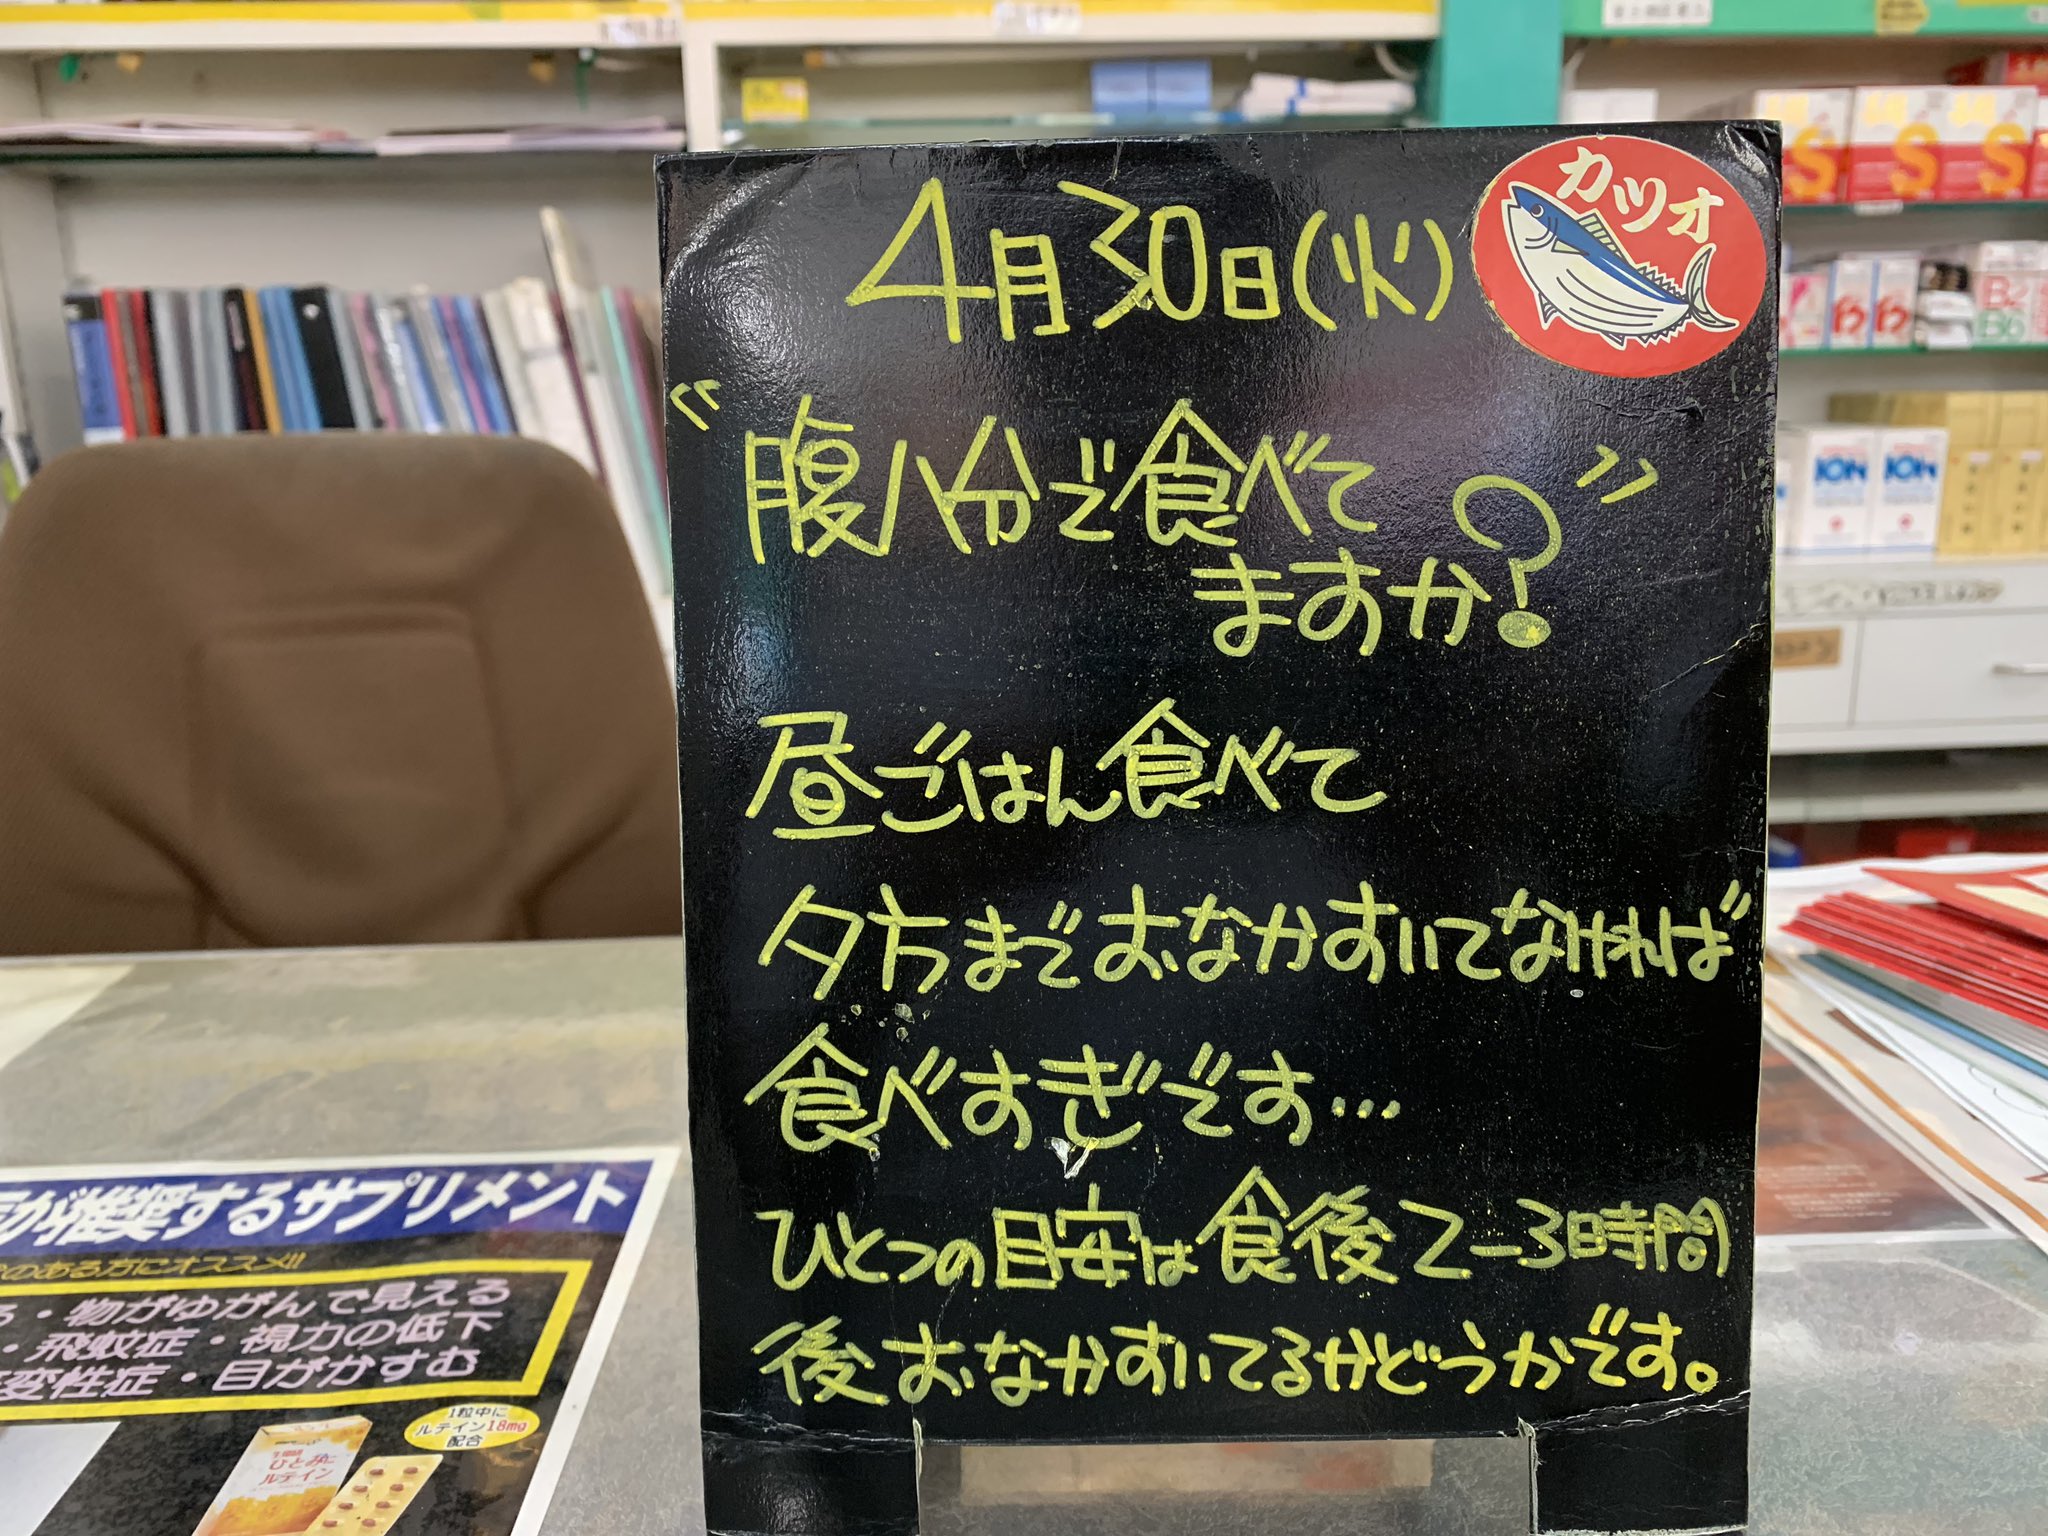 4月30日(火)
カツオ
“腹八分で食べて
ますか?”
昼ごはん食べて
夕方までおなかすいてなければ
食べすぎです…
ひとつの目安は食後2-3時間
後おなかすいてるかどうかです。
が推奨するサプリメント
のある方にオススメ!!
る・物がゆがんで見える
・飛蚊症・視力の低下
変性症・目がかすむ
1粒中に
ルテイン18mg
配合
ひとみに
ルテイン
S
S
S
ION
ION
B2
B6